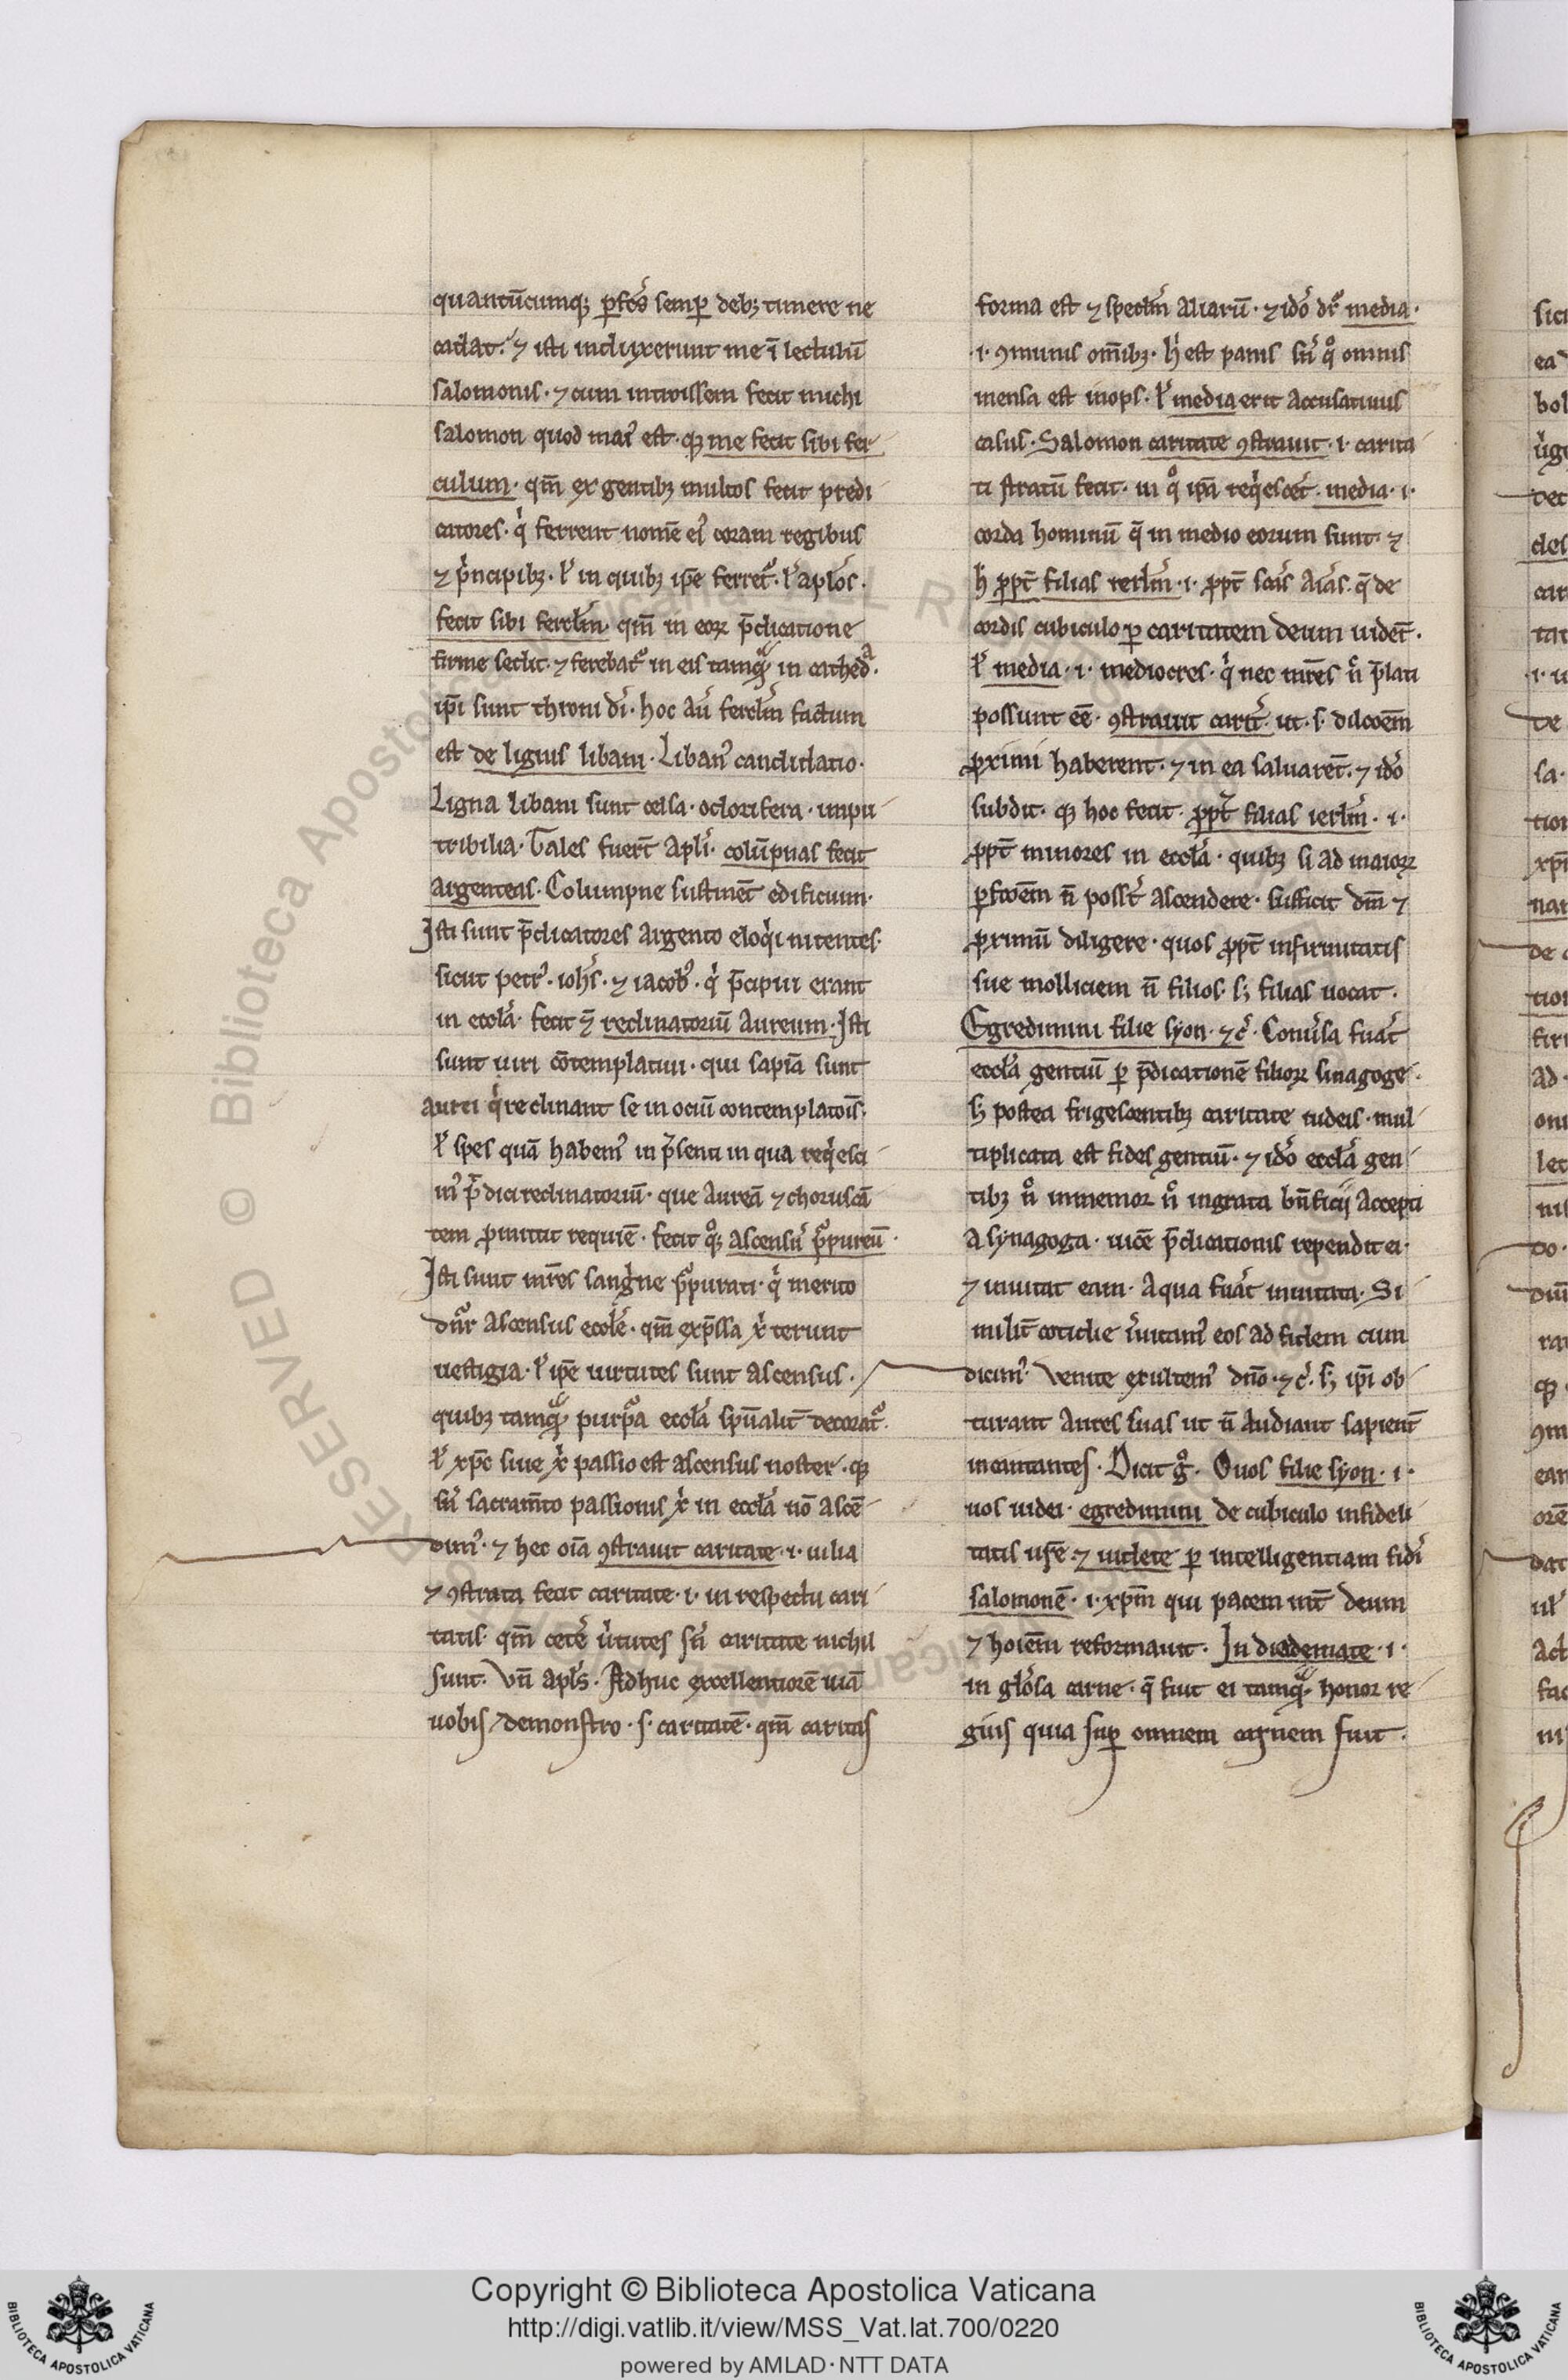 quantũcumq; ꝑfc̃s semꝑ deb; timere ne
cadat. ⁊ isti induxerunt me ĩ lectulũ
salomonis. ⁊ cum introissem fecit michi
salomon quod mai᷒ est. qꝫ me fecit sibi fer
culum. qm̃ ex gentibꝫ multos fecit predi
catores. qͥ ferrent nomẽ ei᷒ coram regibus
⁊ pͥncipibꝫ. ł in quibꝫ ip̃e ferret᷑. ł apl̃os.
fecit sibi fercl̃m. qm̃ in eoꝝ p̃dicatione
firme sedit. ⁊ ferebat᷑ in eis tamqᷓ in cathedᷓ.
ip̃i sunt throni di᷒. hoc au᷒ fercl̃m factum
est de lignis libani. Liban᷒ candidatio.
Ligna libani sunt celsa. odorifera. impu
tribilia. Tales fuer̃t apl̃i. colũpnas fecit
argenteas. Columpne sustinẽt edificium.
Isti sunt p̃dicatores argento eloqͥi nitentes.
sicut petr᷒. ioh̃s. ⁊ iacob᷒. qͥ p̃cipui erant
in eccl̃a. fecit ⁊̃ reclinatoriũ aureum. Isti
sunt uiri cõtemplatiui. qui sapĩa sunt
aurei qͥ reclinant se in ociũ contemplatoĩs.
ł spes quã habem᷒ in p̃senti in qua reqͥesci
m᷒ p̃ dici reclinatoriũ. que aureã ⁊ choruscã
tem ꝓmittit requiẽ. fecit qͦꝫ ascensũ pᷓpureũ.
Isti sunt mr̃es sangͥne pᷓpurati. qͥ merito
dn̄r ascensus eccl̃e. qm̃ exp̃ssa xͥ terunt
uestigia. ł ip̃e uirtutes sunt ascensus.
quibꝫ tamqᷓ purpᷓa eccl̃a spũalit̃ decorat᷑.
ł xp̃c siue xͥ passio est ascensus noster. qꝫ
sñ sacram̃to passionis xͥ in eccl̃a nõ ascẽ
dim᷒. ⁊ hec oĩa ꝯstrauit caritate. i. uilia
⁊ ꝯstrata fecit caritate. i. in respectu cari
tatis. qm̃ cet̃e ũtutes sñ caritate nichil
sunt. Vñ apl̃s. Adhuc excellentiorẽ uiã
uobis demonstro. s. caritatẽ. qm̃ caritas
forma est ⁊ specl̃m aliarũ. ⁊ ido᷒ dr᷑ media.
.i. ꝯmunis om̃ibꝫ. h̃ est panis sñ qͦ omnis
mensa est inops. ł media erit accusatiuus
casus. Salomon caritate ꝯstrauit. i. carita
ti stratũ fecit. in qͦ ip̃a reqͥescet᷑. media. i.
corda hominũ q̃ in medio eorum sunt. ⁊
h̃ ꝓpt̃ filias ierl̃m. i. ꝓpt̃ sc̃as aĩas. q̃ de
cordis cubiculo ꝑ caritatem deum uidẽt.
ł media. i. mediocres. qͥ nec mr̃es ñ p̃lati
possunt eẽ. ꝯstrauit carit̃. ut. s. dilcõem
ꝓximi haberent. ⁊ in ea saluarẽt. ⁊ ido᷒
subdit. qꝫ hoc fecit. ꝓpt̃ filias ierl̃m. i.
ꝓpt̃ minores in eccl̃a. quibꝫ si ad maioꝝ
ꝑfcõem ñ poss̃t ascendere. sufficit dm̃ ⁊
ꝓximũ diligere. quos ꝓpt̃ infirmitatis
sue molliciem ñ filios. sꝫ filias uocat.
Egredimini filie syon. ⁊ c̃. Conũsa fuat᷑
eccl̃a gentiũ ꝑ p̃dicationẽ filioꝝ sinagoge.
sꝫ postea frigescentibꝫ caritate iudeis. mul
tiplicata est fides gentiũ. ⁊ ido᷒ eccl̃a gen
tibꝫ ñ inmemor ñ ingrata bñficij accepti
a synagoga. uicẽ p̃dicationis rependit ei.
⁊ inuitat eam. a qua fuat᷑ inuitata. Si
milit̃ cotidie ĩuitam᷒ eos ad fidem cum
dicim᷒. Venite exultem᷒ dño. ⁊ c̃. sꝫ ip̃i ob
turant aures suas ut ñ audiant sapient̃
incantantes. Dicit gͦ. O uos filie syon. i.
uos iudei. egredimini de cubiculo infideli
tatis ur̃e. ⁊ uidete ꝑ intelligentiam fidi᷒
salomonẽ. i. xp̃m qui pacem int̃ deum
⁊ hoĩem reformauit. In diademate. i.
in gl̃osa carne. q̃ fuit ei tamqᷓ honor re
gius quia suꝑ omnem carnem fuit.
Copyright © Biblioteca Apostolica Vaticana
http://digi.vatlib.it/view/MSS_Vat.lat.700/0220
powered by AMLAD·NTT DATA